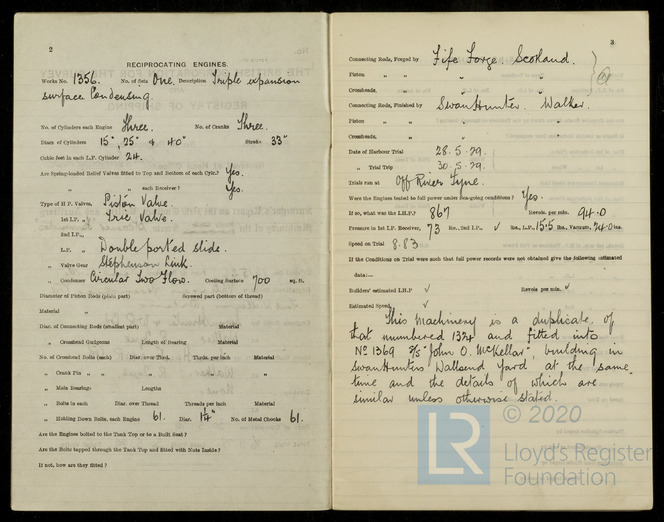 2
RECIPROCATING ENGINES.
Works No. 1356. No. of Sets One. Description Triple expansion
surface Condensing.
No. of Cylinders each Engine Three. No. of Cranks Three.
Diars. of Cylinders 15", 25" & 40" Stroke 33"
Cubic feet in each L.P. Cylinder 24.
Are Spring-loaded Relief Valves fitted to Top and Bottom of each Cylr.? Yes.
" " each Receiver? Yes.
Type of H.P. Valves, Piston Valve.
" 1st I.P. "
Valve.
" 2nd I.P. "
" L.P. " Double ported slide.
" Valve Gear Stephenson Link.
" Condenser Circular Two Flow. Cooling Surface 700 sq. ft.
Diameter of Piston Rods (plain part) Screwed part (bottom of thread)
Material "
Diar. of Connecting Rods (smallest part) Material
" Crosshead Gudgeons Length of Bearing Material
No. of Crosshead Bolts (each) Diar. over Thrd. Thrds. per inch Material
" Crank Pin " " " " "
" Main Bearings Lengths
" Bolts in each Diar. over Thread Threads per inch Material
" Holding Down Bolts, each Engine 61. Diar. 1¼" No. of Metal Chocks 61.
Are the Engines bolted to the Tank Top or to a Built Seat?
Are the Bolts tapped through the Tank Top and fitted with Nuts Inside?
If not, how are they fitted?
3
Connecting Rods, Forged by Fife Forge Scotland.
Piston " " " "
Crossheads, " " "
Connecting Rods, Finished by Swan Hunter. Walker.
Piston " " " "
Crossheads, " " "
Date of Harbour Trial 28.5.29.
" Trial Trip 30.5.29.
Trials run at Off River Tyne.
Were the Engines tested to full power under Sea-going conditions? Yes.
If so, what was the I.H.P.? 867 Revols. per min. 94.0
Pressure in 1st I.P. Receiver, 73 lbs., 2nd I.P., ✓ lbs., L.P., 15.5 lbs., Vacuum, 24.0 ins.
Speed on Trial 8.83
If the Conditions on Trial were such that full power records were not obtained give the following estimated
data:—
Builders' estimated I.H.P. ✓ Revols. per min. ✓
Estimated Speed ✓
This Machinery is a duplicate of
that numbered 1374 and fitted into
No 1369 S/S "John O. McKellar", building in
Swan Hunters Wallsend Yard at the same
time and the details of which are
similar unless otherwise stated.
© 2020
LR
Lloyd's Register
Foundation